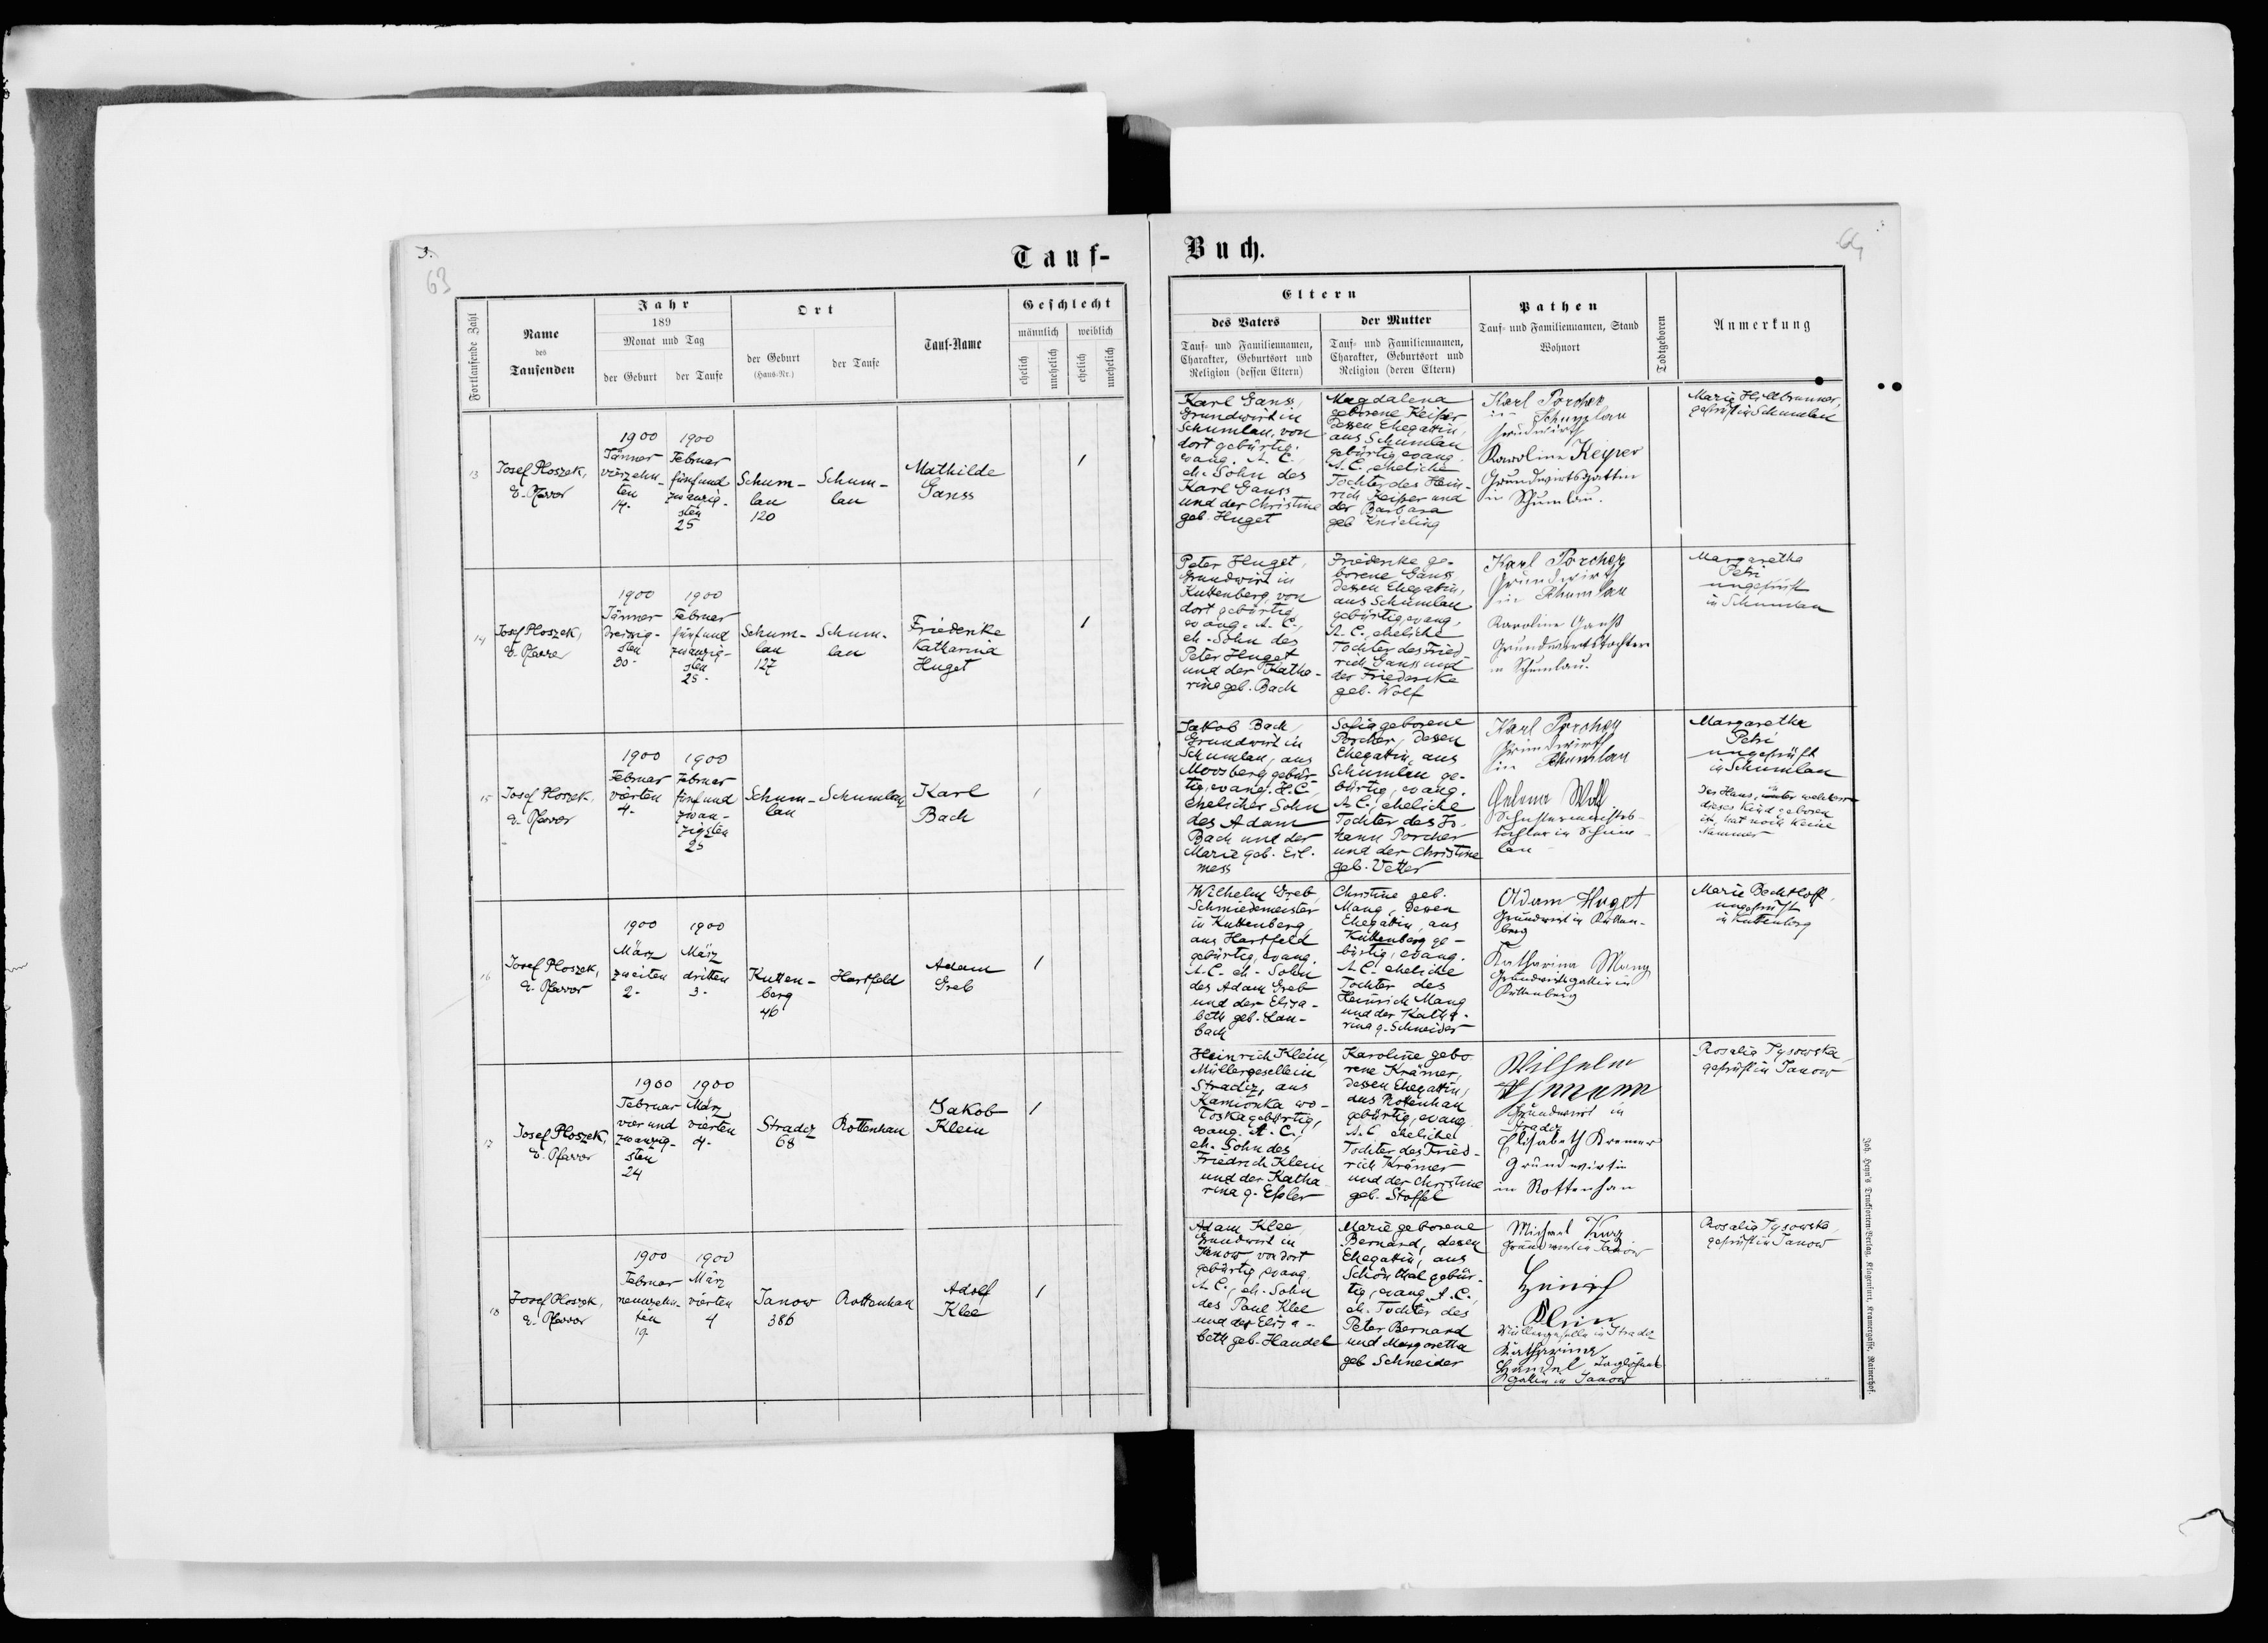 3.
63
Tauf-
Fortlaufende Zahl
Name
des
Taufenden
Jahr
189
Monat und Tag
der Geburt
der Taufe
Ort
der Geburt
(Haus-Nr.)
der Taufe
Tauf-Name
Geschlecht
männlich
weiblich
ehelich
unehelich
ehelich
unehelich
13
Josef Ploszek,
e. Pfarrer
1900
Jänner
vierzehn-
ten
14.
1900
Februar
fünfund
zwanzig-
sten
25
Schum-
lau
120
Schum-
lau
Mathilde
Ganss
1
14
Josef Ploszek,
e. Pfarrer
1900
Jänner
dreissig-
sten
30.
1900
Februar
fünfund
zwanzig-
sten
25.
Schum-
lau
127
Schum-
lau
Friederike
Katharina
Huget
1
15
Josef Ploszek,
e. Pfarrer
1900
Februar
vierten
4.
1900
Februar
fünfund
zwan-
zigsten
25
Schum-
lau
Schumlau
Karl
Bach
1
16
Josef Ploszek,
e. Pfarrer
1900
März
zweiten
2.
1900
März
dritten
3.
Kutten-
berg
46
Hartfeld
Adam
Greb
1
17
Josef Ploszek,
e. Pfarrer
1900
Februar
vier und
zwanzig-
sten
24
1900
März
vierten
4.
Stradcz
68
Rottenhan
Jakob
Klein
1
18
Josef Ploszek,
e. Pfarrer
1900
Februar
neunzehn-
ten
19
1900
März
vierten
4
Janow
386
Rottenhan
Adolf
Klee
1
Buch.
64
Eltern
des Vaters
Tauf- und Familiennamen,
Charakter, Geburtsort und
Religion (dessen Eltern)
der Mutter
Tauf- und Familiennamen,
Charakter, Geburtsort und
Religion (deren Eltern)
Pathen
Tauf- und Familiennamen, Stand
Wohnort
Todtgeboren
Anmerkung
Karl Ganss,
Grundwirt in
Schumlau, von
dort gebürtig,
evang. A. C.,
eh. Sohn des
Karl Ganss
und der Christine
geb. Huget
Magdalena
geborene Keiper
dessen Ehegattin,
aus Schumlau
gebürtig, evang.
A. C., eheliche
Tochter des Hein-
rich Keiper und
der Barbara
geb Knieling
Karl Porcher
in Schumlau
Grundwirth
Karoline Keiper
Grundwirtsgattin
in Schumlau.
Marie
geprüft in Schumlau
Peter Huget,
Grundwirt in
Kuttenberg, von
dort gebürtig,
evang. A. C.,
eh. Sohn des
Peter Huget
und der Katha-
rina geb. Bach
Friederike ge-
borene Ganss
dessen Ehegattin,
aus Schumlau
gebürtig, evang.
A. C., eheliche
Tochter des Fried-
rich Ganss und
der Friederike
geb. Wolf
Karl Porcher
Grundwirth
in Schumlau
Karoline Ganß
Grundwirtstochter
in Schumlau.
Margaretha
Petri
ungeprüft
in Schumlau
Jakob Bach,
Grundwirt in
Schumlau, aus
Moosberg gebür-
tig, evang. H. C.,
ehelicher Sohn
des Adam
Bach und der
Marie geb. Erl-
mess
Sofia geborene
Porcher, dessen
Ehegattin, aus
Schumlau ge-
bürtig, evang.
A. C., eheliche
Tochter des Jo-
hann Porcher
und der Christine
geb. Vetter
Karl Porcher
Grundwirth
in Schumlau
Schustermeisters-
tochter in Schum
lau
Margaretha
Petri
ungeprüft
in Schumlau
Das Haus, unter welchem
dieses Kind geboren
ist, hat noch keine
Nummer
Wilhelm Greb,
Schmiedemeister
in Kuttenberg,
aus Hartfeld
gebürtig, evang.
A. C. eh. Sohn
des Adam Greb
und der Elisa-
beth geb. Lau-
bach
Christine geb.
Mang, dessen
Ehegattin, aus
Kuttenberg ge-
bürtig, evang.
A. C. eheliche
Tochter des
Heinrich Mang
und der Katha-
rina g. Schneider
Adam Huget
Grundwirt in Kutten-
berg
Katharina Mang
Grundwirtsgattin in
Kuttenberg
Marie Bechtloff,
ungeprüft
in Kuttenberg
Heinrich Klein,
Müllergeselle in
Stradcz, aus
Kamionka wo-
loska gebürtig,
evang. A. C.,
eh. Sohn des
Friedrich Klein
und der Katha
rina g. Eßler
Karoline gebo
rene Krämer,
dessen Ehegattin,
aus Rottenhan
gebürtig, evang.
A. C. eheliche
Tochter des Fried-
rich Krämer
und der Christine
geb. Stoffel
Wilhelm
Grundwirt in
Stradcz
Elisabeth Kremer
Grundwirtin
in Rottenhan
Rosalia Tysowska,
geprüft in Janow
Adam Klee,
Grundwirt in
Janow, von dort
gebürtig, evang.
A. C., eh. Sohn
des Paul Klee
und der Elisa-
beth geb. Handel
Marie geborene
Bernard, dessen
Ehegattin, aus
Schönthal gebür-
tig, evang. A. C.,
eh. Tochter des
Peter Bernard
und Margaretha
geb Schneider
Michael Kurz
Grundwirt in Janow
Heinrich
Klein
Müllergeselle in Stradcz
Katharina
Handel, Taglöhners
gattin in Janow
Rosalia Tysowska,
geprüft in Janow
Joh. Heyn's Drucksorten-Verlag, Klagenfurt, Kramergasse, Rainerhof.